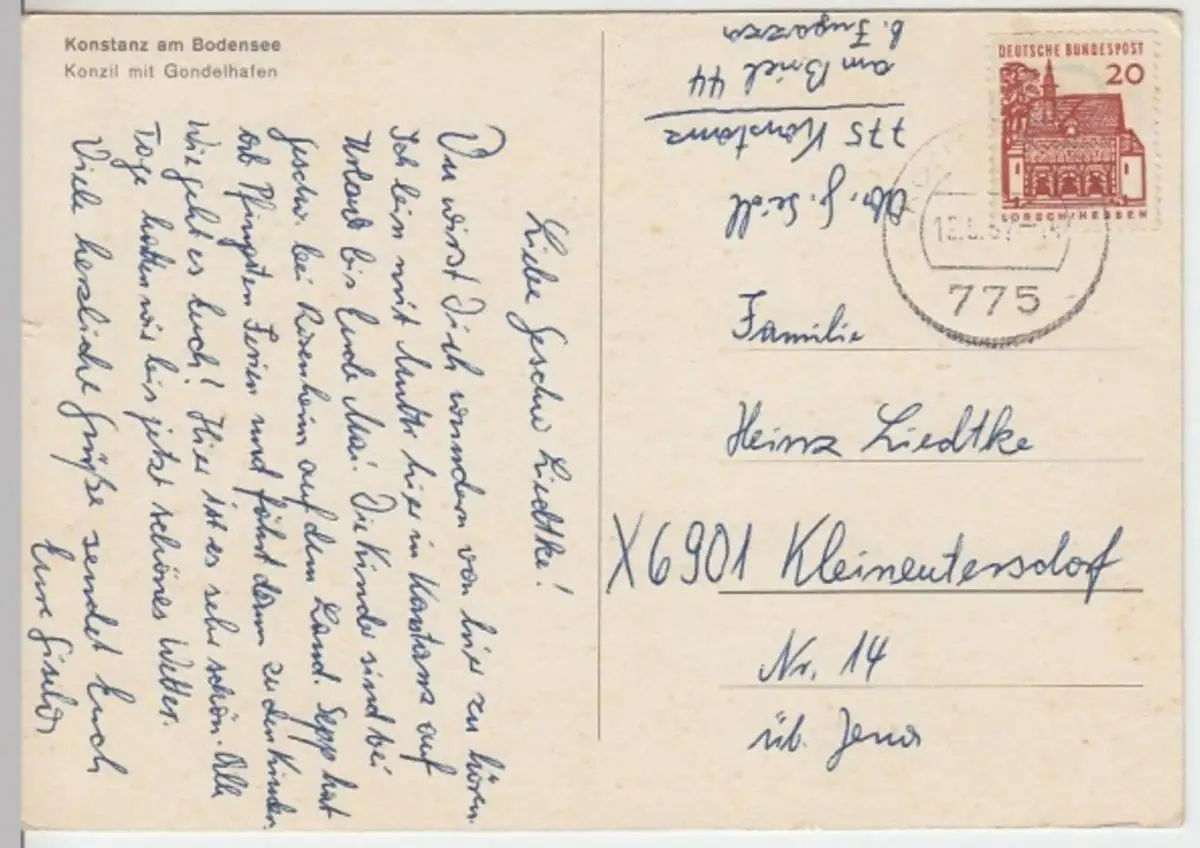 Konstanz am Bodensee
Konzil mit Gondelhafen
Liebe Geschw. Liedtke!
Du wirst Dich wundern von hier zu hören.
Ich bin mit Mutti hier in Konstanz auf
Urlaub bis Ende Mai. Die Kinder sind bei
Geschw. bei Rosenheim auf dem Land. Sepp hat
ab Pfingsten Ferien und fährt dann zu den Kindern.
Wie geht es Euch! Hier ist es sehr schön. Alle
Tage hatten wir bis jetzt schönes Wetter.
Viele herzliche Grüße sendet Euch
Eure
Abs. G. Seidl
775 Konstanz
am Briel 44
b.
DEUTSCHE BUNDESPOST
20
LORSCH/HESSEN
775
Familie
Heinz Liedtke
X6901 Kleineutersdorf
Nr. 14
üb. Jena